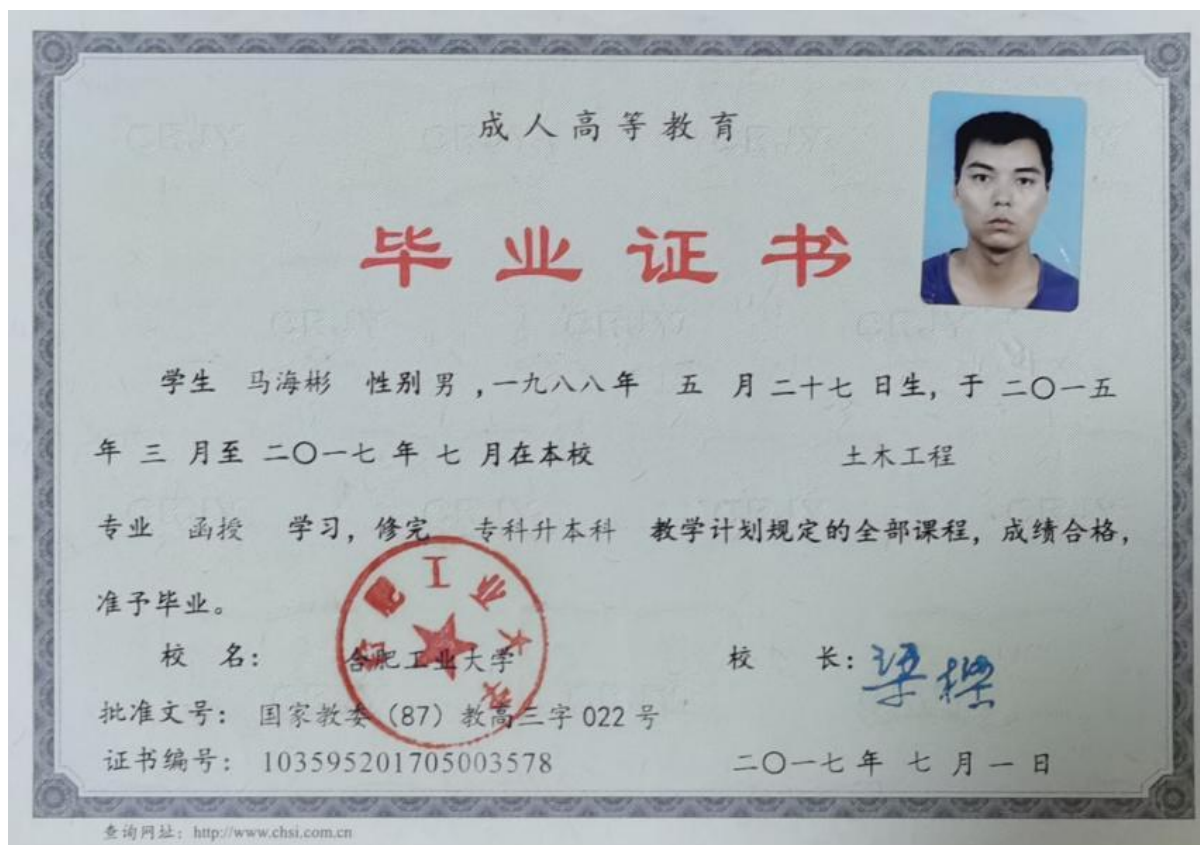 成人高等教育
毕业证书
学生 马海彬 性别 男 ,一九八八年 五 月 二十七 日生, 于 二〇一五
年 三 月至 二〇一七 年 七 月在本校 土木工程
专业 函授 学习, 修完 专科升本科 教学计划规定的全部课程, 成绩合格,
准予毕业。
校 名: 合肥工业大学 校 长: 梁樑
批准文号: 国家教委 (87) 教高三字 022 号
证书编号: 103595201705003578 二〇一七 年 七 月 一 日
查询网址: http://www.chsi.com.cn
合肥工业大学